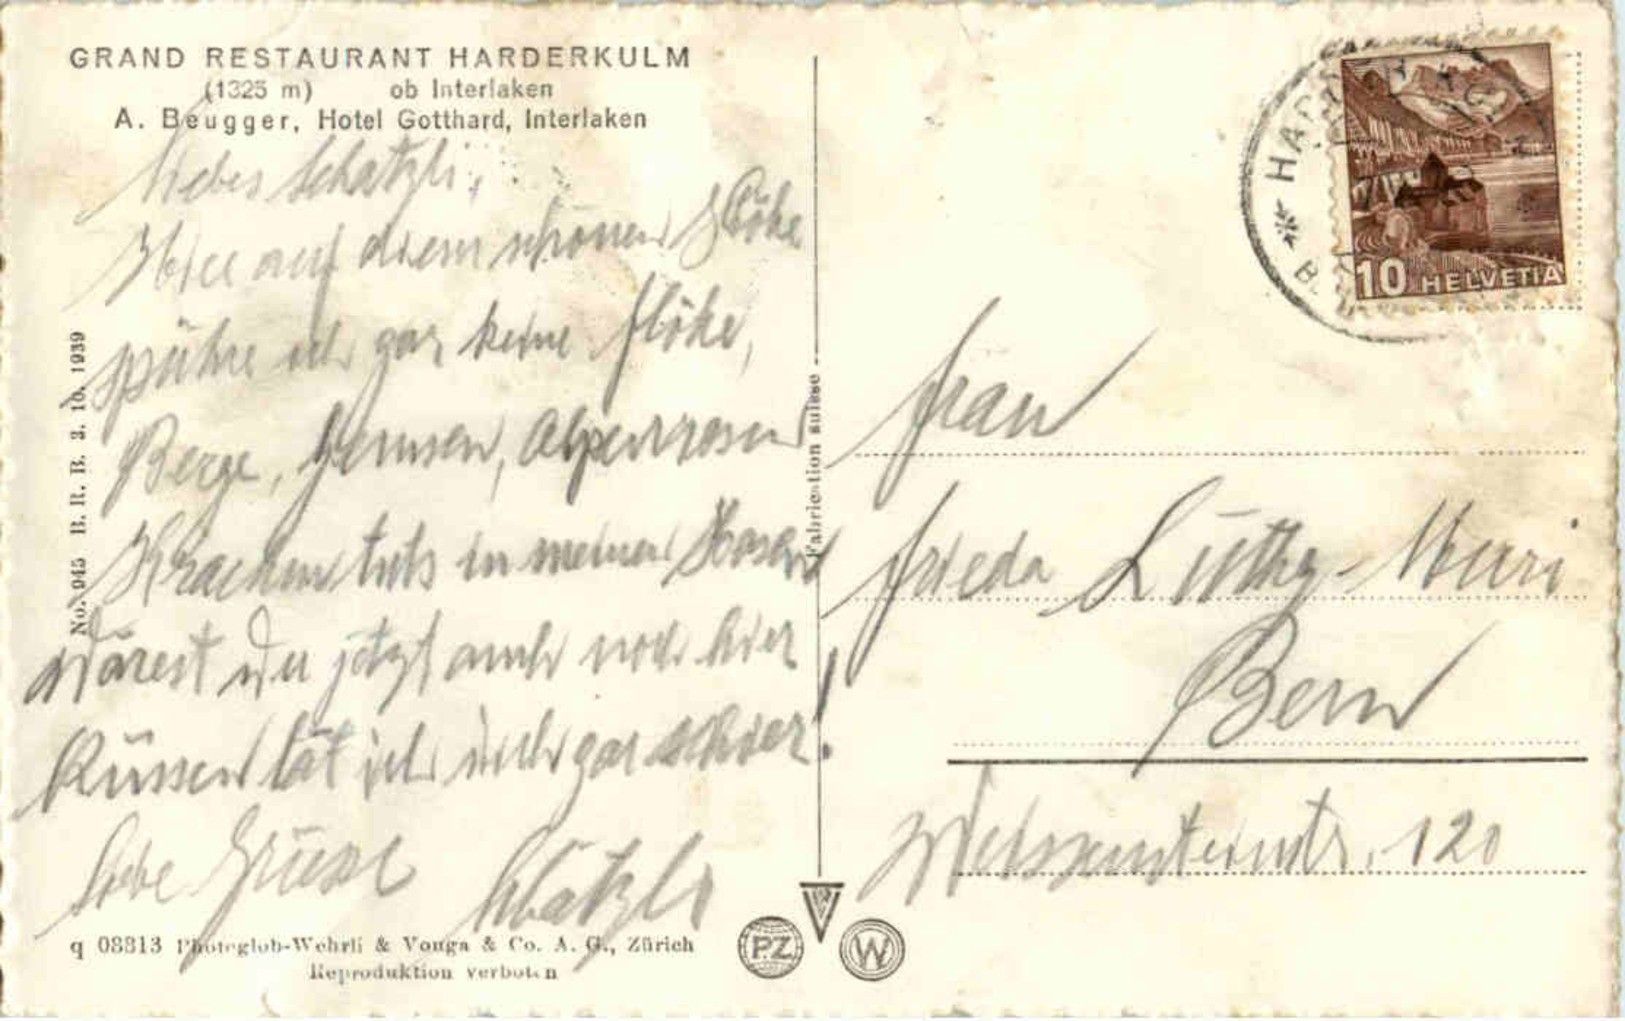 GRAND RESTAURANT HARDERKULM
(1325 m) ob Interlaken
A. Beugger, Hotel Gotthard, Interlaken
Liebes Schatzli,
Hier auf diesen schönen Höhe
spühre ich gar keine Flöhe,
Berge, Gemsen, Alpenrosen
Krachen tuts in meinen Hosen
Wärest Du jetzt auch noch hier
Küssen tät ich dich gar schier!
Liebe Grüsse Schatzli
No. 945 B. R. B. 3. 10. 1939
q 08813 Photoglob-Wehrli & Vouga & Co. A. G., Zürich
Reproduktion verboten
Fabrication suisse
PZ
W
HARD
B.
10 HELVETIA
Frau
Frieda Lüthy-Muri
Bern
Weissensteinstr. 120